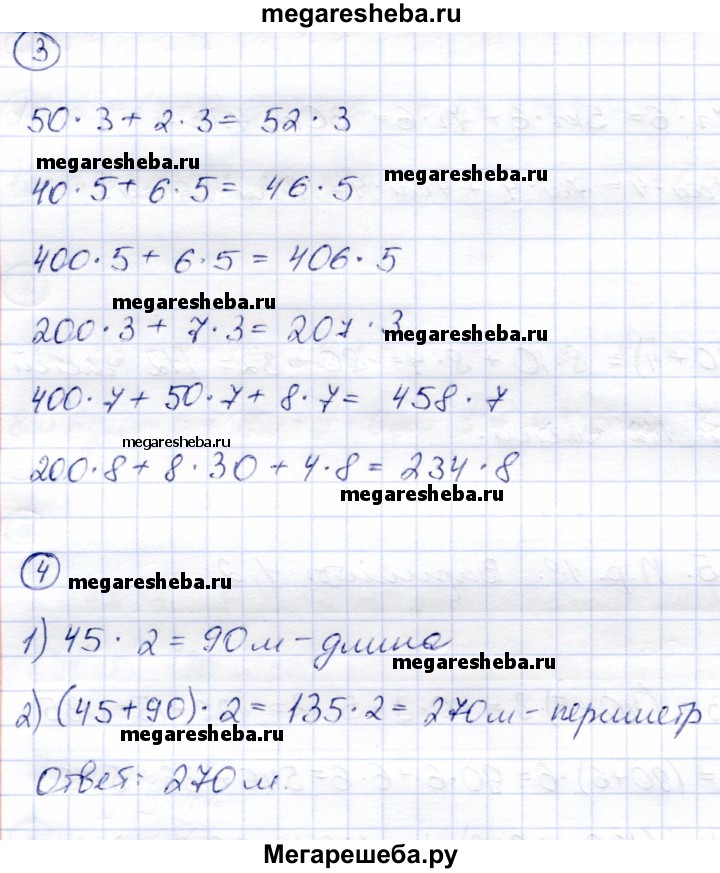 megaresheba.ru
3
50 · 3 + 2 · 3 = 52 · 3
megaresheba.ru
megaresheba.ru
40 · 5 + 6 · 5 = 46 · 5
400 · 5 + 6 · 5 = 406 · 5
megaresheba.ru
200 · 3 + 7 · 3 = 207 · 3
megaresheba.ru
400 · 7 + 50 · 7 + 8 · 7 = 458 · 7
megaresheba.ru
200 · 8 + 8 · 30 + 4 · 8 = 234 · 8
megaresheba.ru
4
megaresheba.ru
1) 45 · 2 = 90 м - длина
megaresheba.ru
2) (45 + 90) · 2 = 135 · 2 = 270 м - периметр
megaresheba.ru
Ответ: 270 м.
Мегарешеба.ру